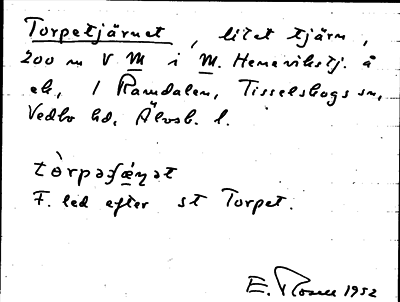 Torpetjärnet, litet tjärn,
200 m V M i M. Hemevikstj. å
ek, 1 Ramdalen, Tisselskogs sn,
Vedbo hd, Älvsb. l.
tòrpəʃæ̣ṇət
F. led efter st Torpet.
E. Rosell 1952